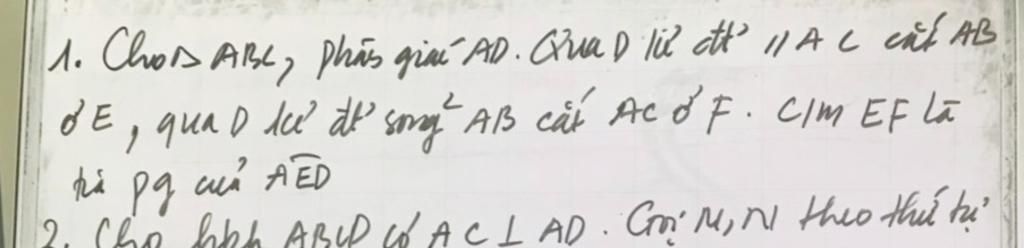 1. Cho △ ABC, phân giác AD. Qua D kẻ đt' // AC cắt AB
ở E, qua D kẻ đt' song² AB cắt AC ở F. C/m EF là
tia pg của AED
2. Cho hbh ABCD có AC ⊥ AD. Gọi M, N theo thứ tự